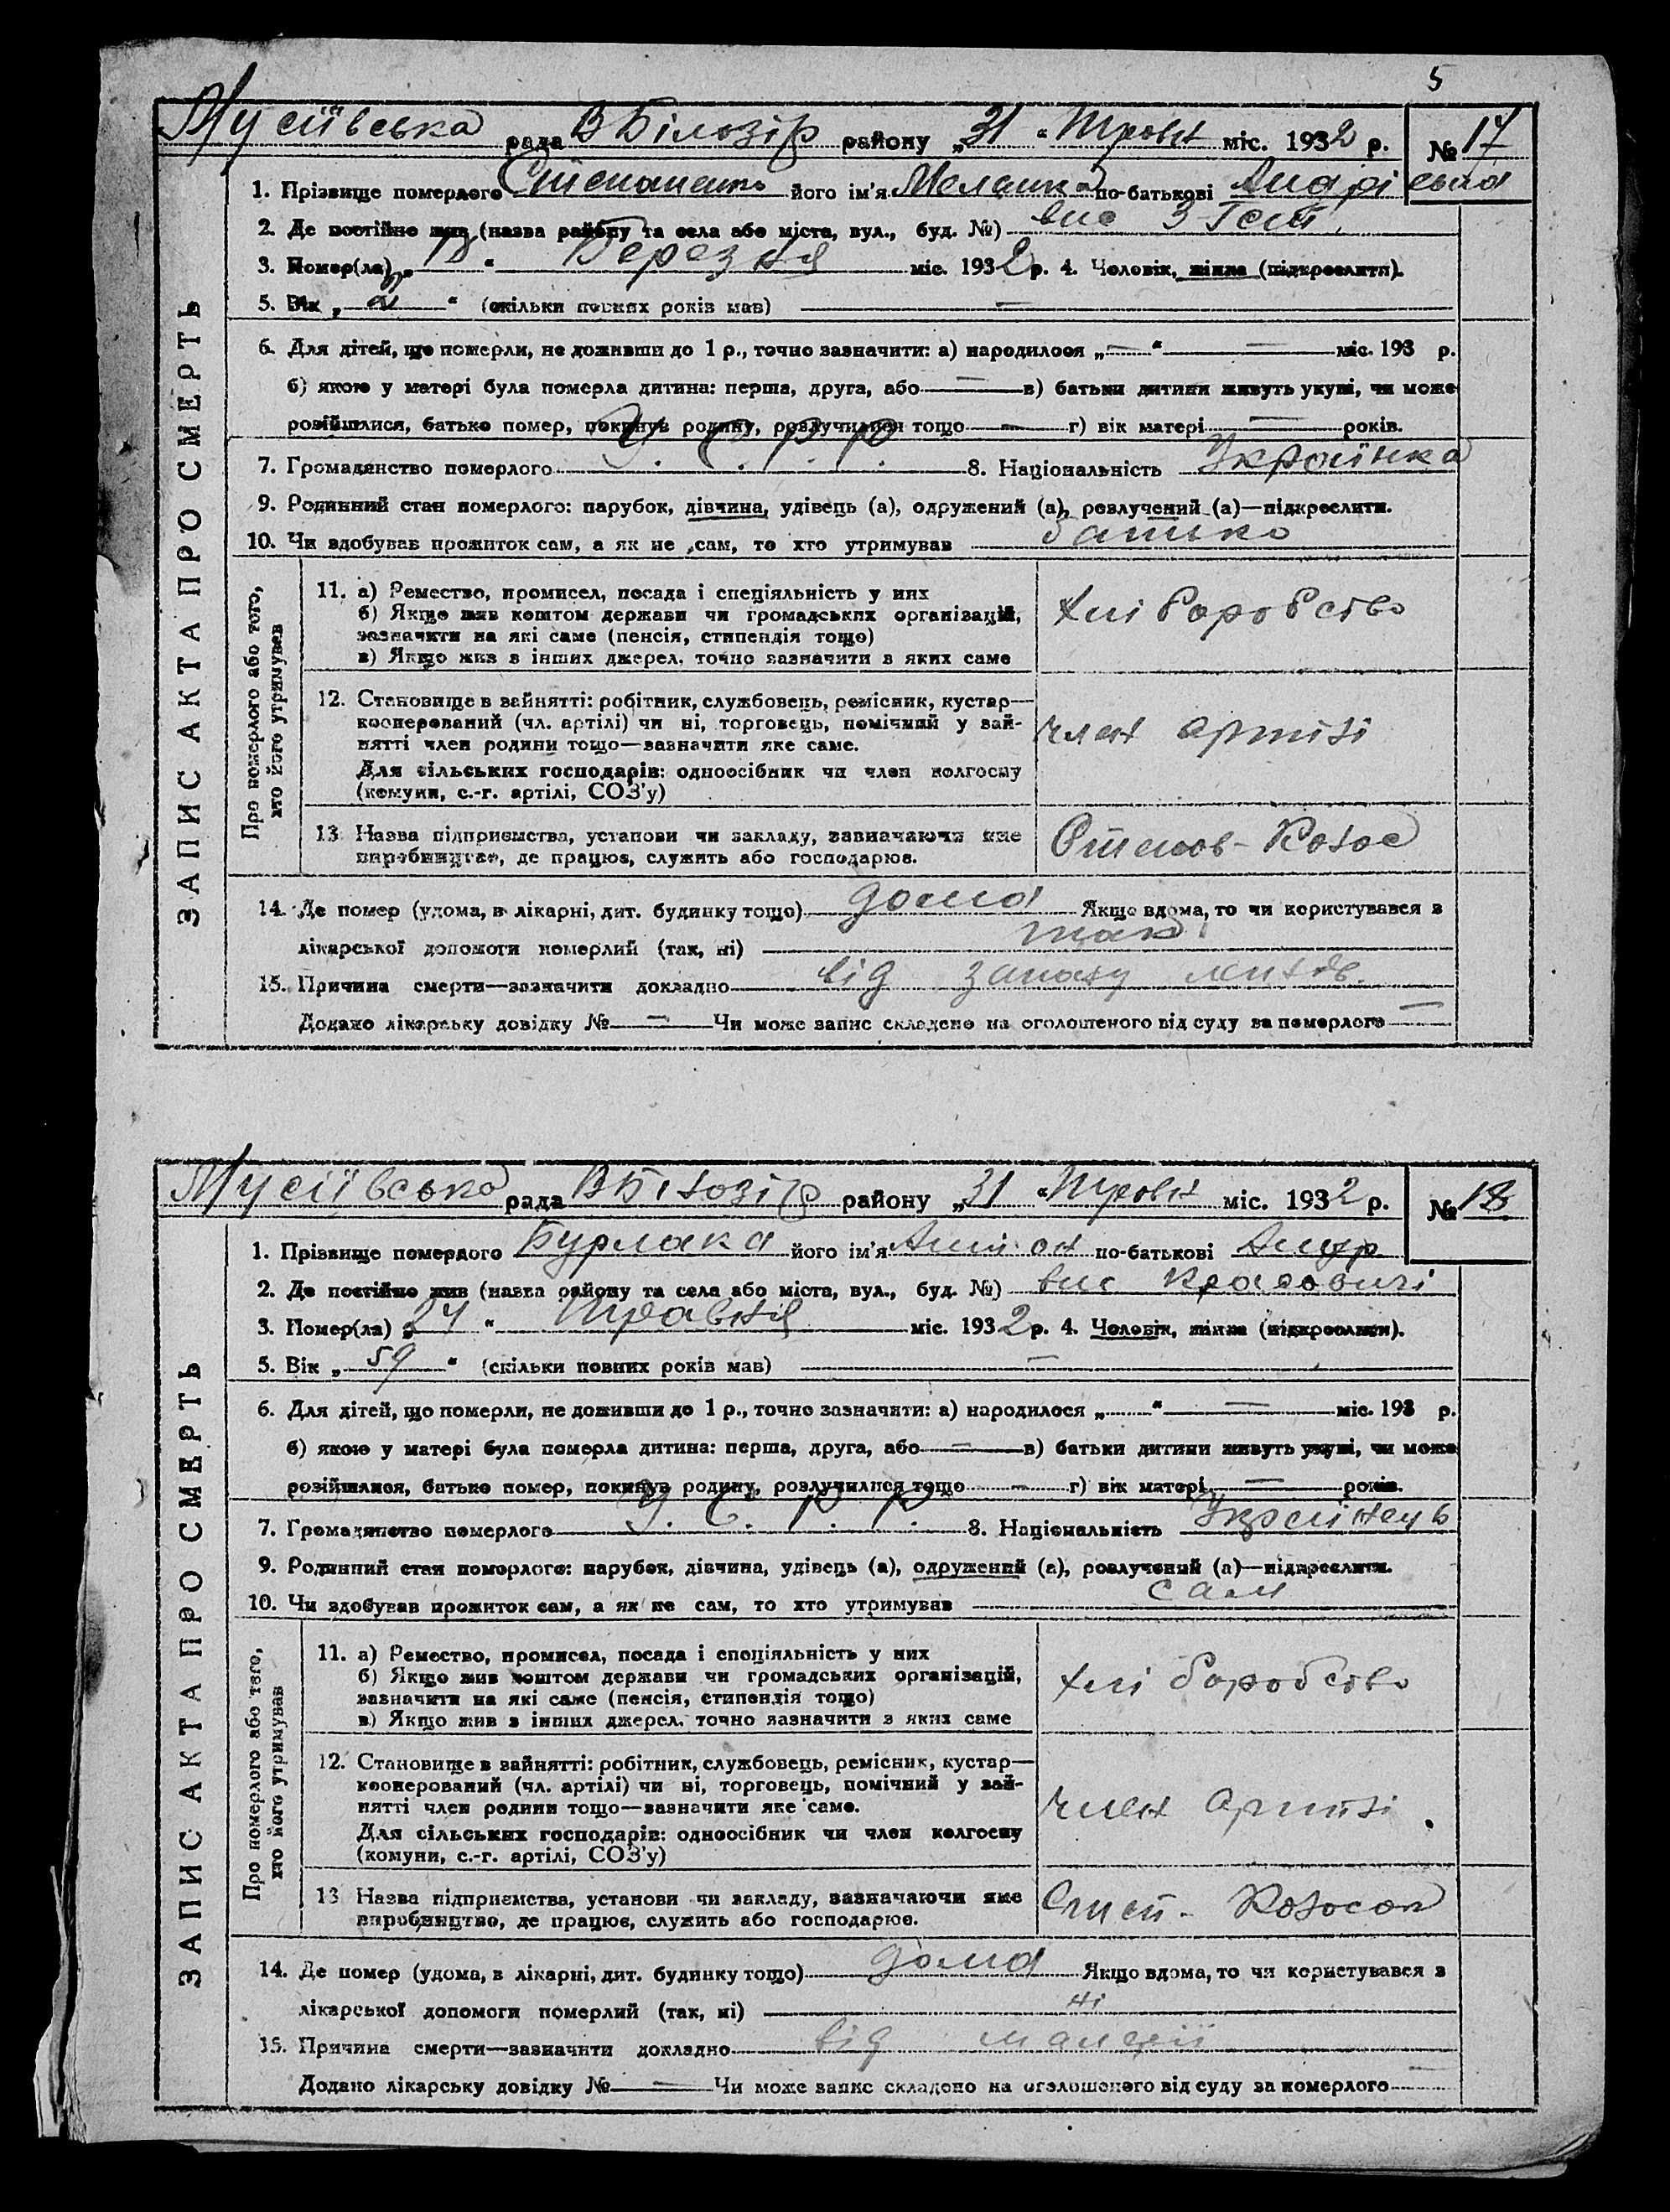 5
Мусіївська рада ВБілозір району „31“ Травн міс. 1932 р. № 17
1. Прізвище померлого Степаненко його ім'я Меланка по-батькові Андрієвна
2. Де постійно жив (назва району та села або міста, вул., буд. №) вис
3. Помер(ла) „ “ Березня міс. 1932 р. 4. Чоловік, жінка (підкреслити).
5. Вік „ “ (скільки повних років мав) —
6. Для дітей, що померли, не доживши до 1 р., точно зазначити: а) народилося „—“ — міс. 193 р.
б) якою у матері була померла дитина: перша, друга, або — в) батьки дитини живуть укупі, чи може
розійшлися, батько помер, покинув родину, розлучилися тощо — г) вік матері — років.
7. Громадянство померлого У. С. Р. Р. 8. Національність Українка
9. Родинний стан померлого: парубок, дівчина, удівець (а), одружений (а), розлучений (а)—підкреслити.
10. Чи здобував прожиток сам, а як не сам, то хто утримував батько
ЗАПИС АКТА ПРО СМЕРТЬ
Про померлого або того,
хто його утримував
11. а) Ремество, промисел, посада і спеціяльність у них
б) Якщо жив коштом держави чи громадських організацій,
зазначити на які саме (пенсія, стипендія тощо)
в) Якщо жив з інших джерел, точно зазначити з яких саме
хліборобство
12. Становище в занятті: робітник, службовець, ремісник, кустар—
кооперований (чл. артілі) чи ні, торговець, помічний у зай-
нятті член родини тощо—зазначити яке саме.
Для сільських господарів: одноосібник чи член колгоспу
(комуни, с.-г. артілі, СОЗ'у)
член артілі
13 Назва підприємства, установи чи закладу, зазначаючи яке
виробництво, де працює, служить або господарює.
14. Де помер (удома, в лікарні, дит. будинку тощо) дома Якщо вдома, то чи користувався з
лікарської допомоги померлий (так, ні) так
15. Причина смерти—зазначити докладно від запалу легенів.
Додано лікарську довідку № — Чи може запис складено на оголошеного від суду за померлого —
Мусіївська рада ВБілозір району „31“ Травн міс. 1932 р. № 18
1. Прізвище померлого Бурлака його ім'я Антон по-батькові Андр
2. Де постійно жив (назва району та села або міста, вул., буд. №) вис
3. Помер(ла) „24“ Травня міс. 1932 р. 4. Чоловік, жінка (підкреслити).
5. Вік „59“ (скільки повних років мав) —
6. Для дітей, що померли, не доживши до 1 р., точно зазначити: а) народилося „ “ — міс. 193 р.
б) якою у матері була померла дитина: перша, друга, або — в) батьки дитини живуть укупі, чи може
розійшлися, батько помер, покинув родину, розлучилися тощо — г) вік матері — років.
7. Громадянство померлого У. С. Р. Р. 8. Національність Українець
9. Родинний стан померлого: парубок, дівчина, удівець (а), одружений (а), розлучений (а)—підкреслити.
10. Чи здобував прожиток сам, а як не сам, то хто утримував сам
ЗАПИС АКТА ПРО СМЕРТЬ
Про померлого або того,
хто його утримував
11. а) Ремество, промисел, посада і спеціяльність у них
б) Якщо жив коштом держави чи громадських організацій,
зазначити на які саме (пенсія, стипендія тощо)
в) Якщо жив з інших джерел, точно зазначити з яких саме
хліборобство
12. Становище в занятті: робітник, службовець, ремісник, кустар—
кооперований (чл. артілі) чи ні, торговець, помічний у зай-
нятті член родини тощо—зазначити яке саме.
Для сільських господарів: одноосібник чи член колгоспу
(комуни, с.-г. артілі, СОЗ'у)
член артілі
13 Назва підприємства, установи чи закладу, зазначаючи яке
виробництво, де працює, служить або господарює.
14. Де помер (удома, в лікарні, дит. будинку тощо) дома Якщо вдома, то чи користувався з
лікарської допомоги померлий (так, ні) ні
15. Причина смерти—зазначити докладно від малярії
Додано лікарську довідку № — Чи може запис складено на оголошеного від суду за померлого —